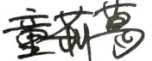 童莉葛